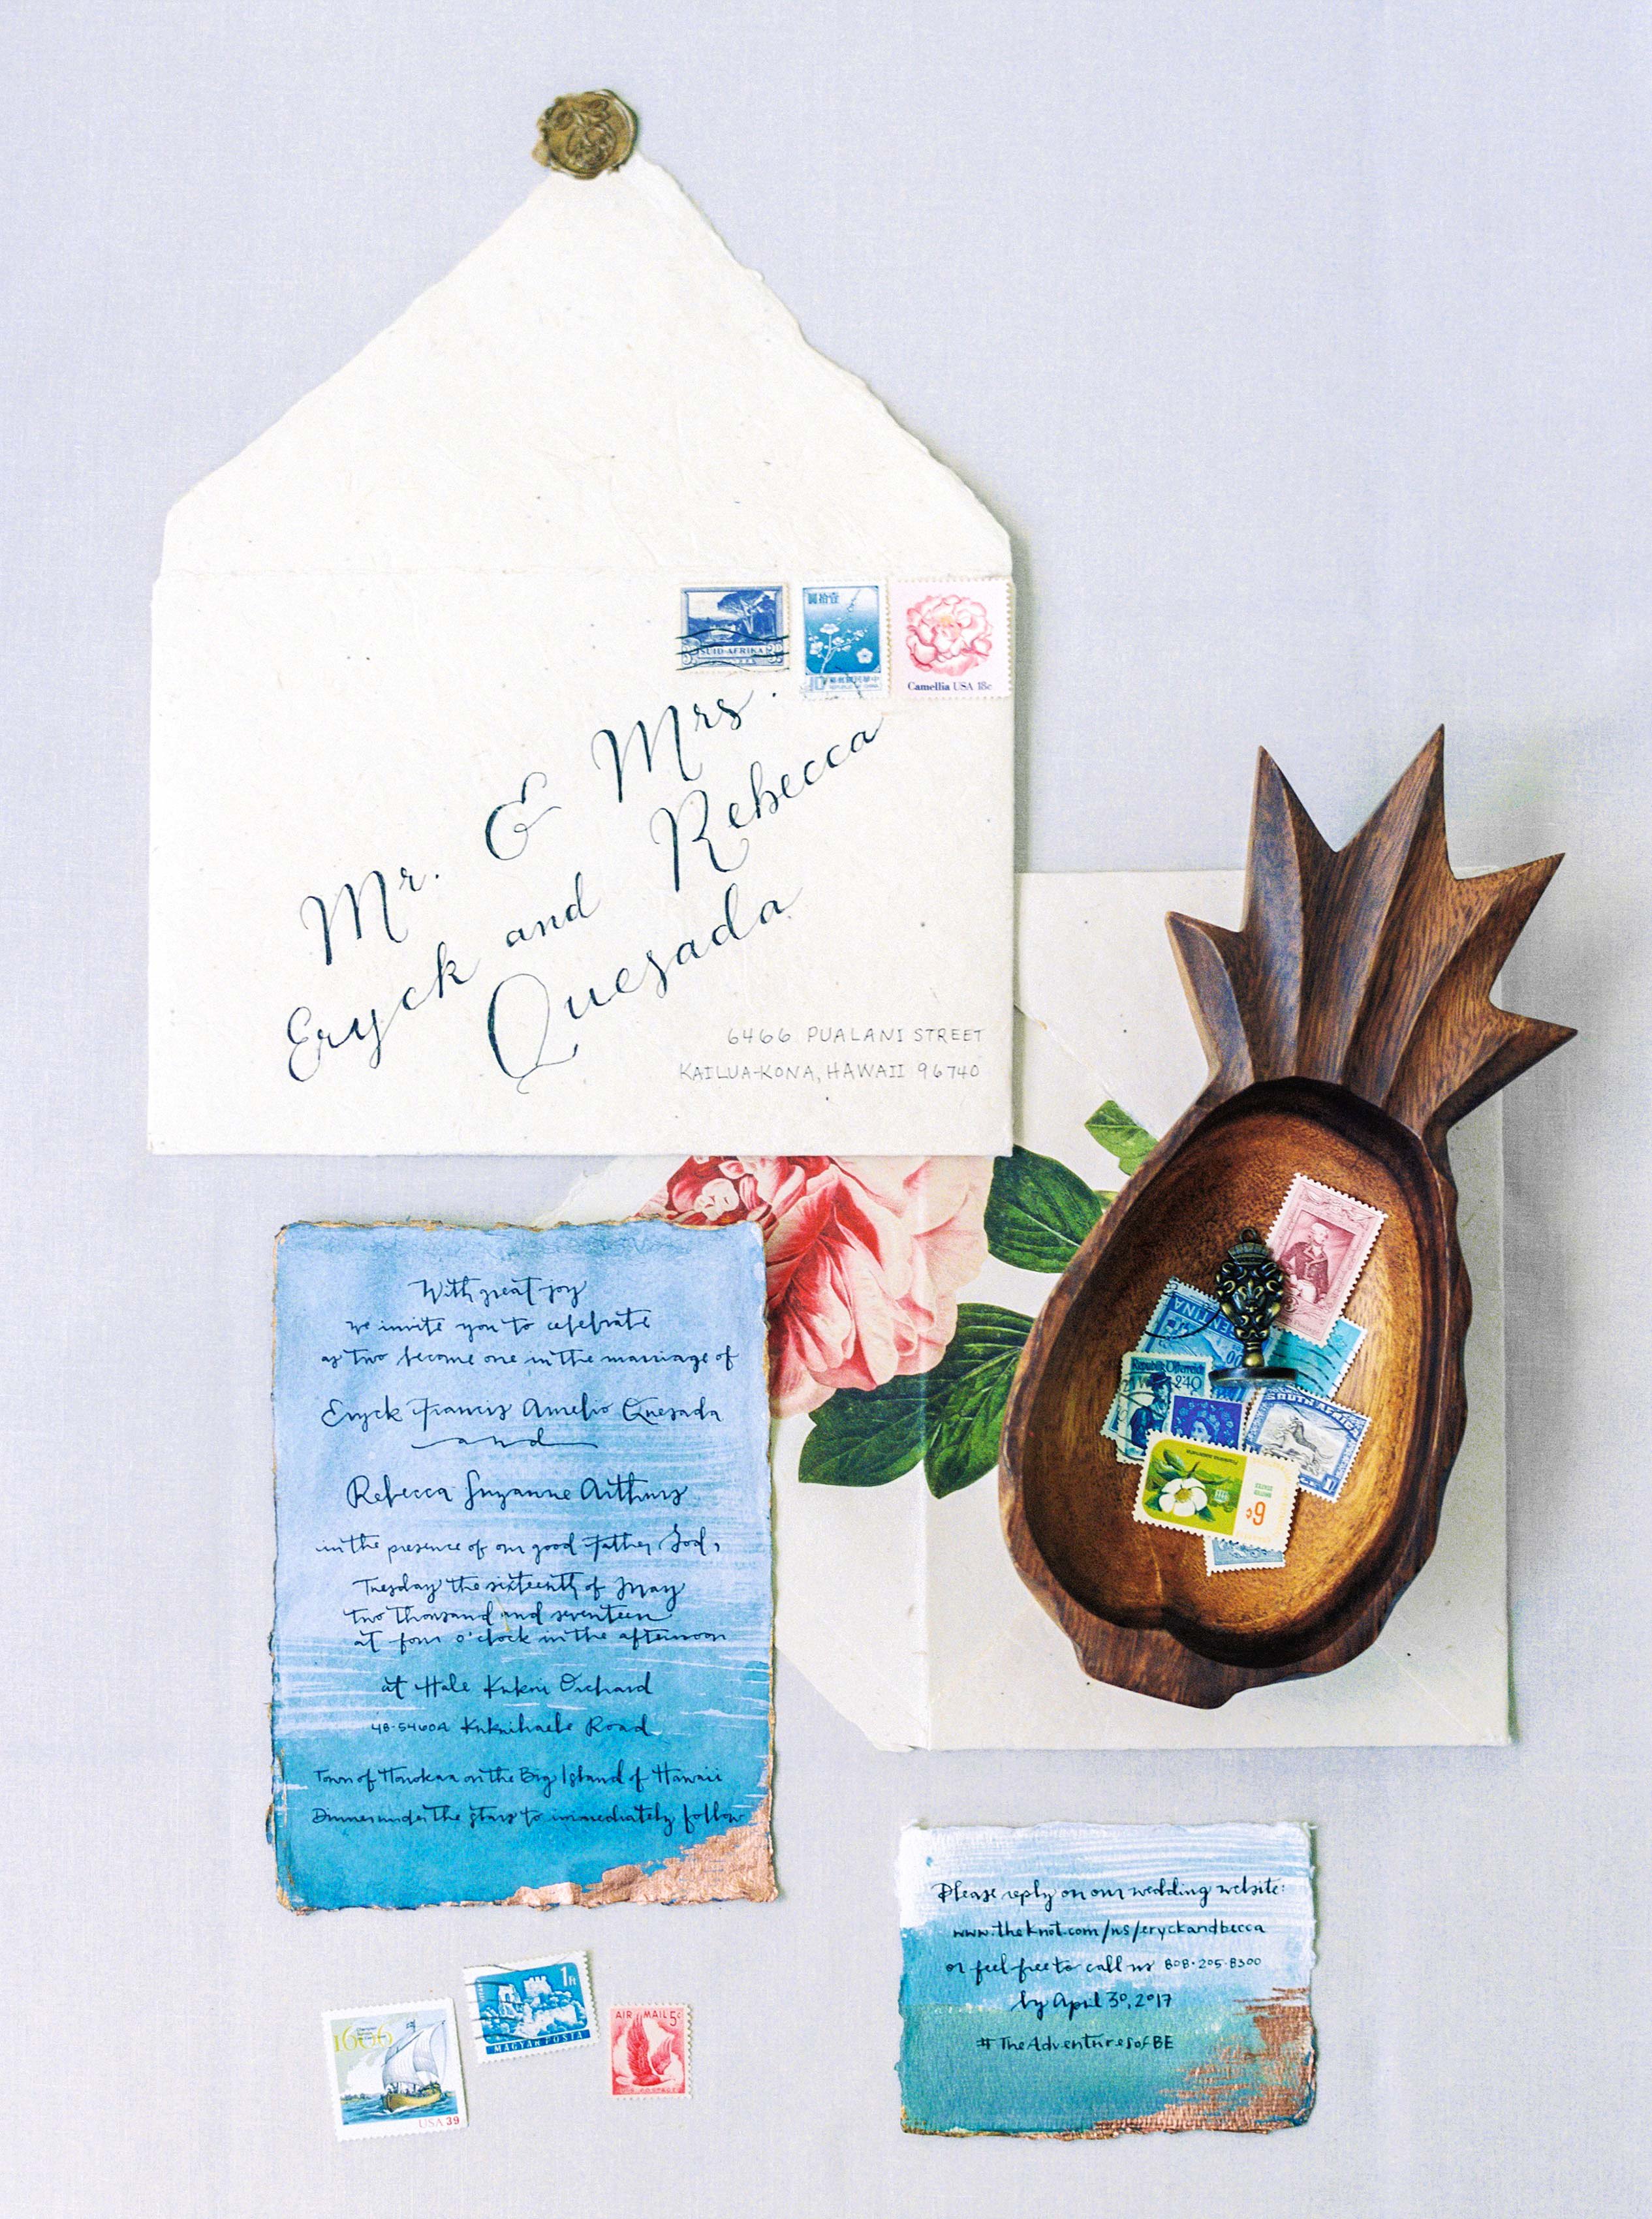 SUID-AFRIKA
圓拾壹
10
REPUBLIC OF CHINA
Camellia USA 18c
Mr. & Mrs.
Eryck and Rebecca
Quesada
6466 PUALANI STREET
KAILUA-KONA, HAWAII 96740
With great joy
we invite you to celebrate
as two become one in the marriage of
Eryck Francis Amelio Quesada
and
Rebecca Suzanne Arthurs
in the presence of our good Father, God,
Tuesday the sixteenth of May
two thousand and seventeen
at four o'clock in the afternoon
at Hale Kukui Orchard
48-5460A Kukuihaele Road
Town of Honokaa on the Big Island of Hawaii
Dinner under the stars to immediately follow
Republik Österreich
2.40
SOUTH AFRICA
6¢
Please reply on our wedding website:
www.theknot.com/us/eryckandbecca
or feel free to call us 808·205·8300
by April 30, 2017
#TheAdventuresofBE
1606
USA 39
1Ft
MAGYAR POSTA
AIR MAIL 5¢